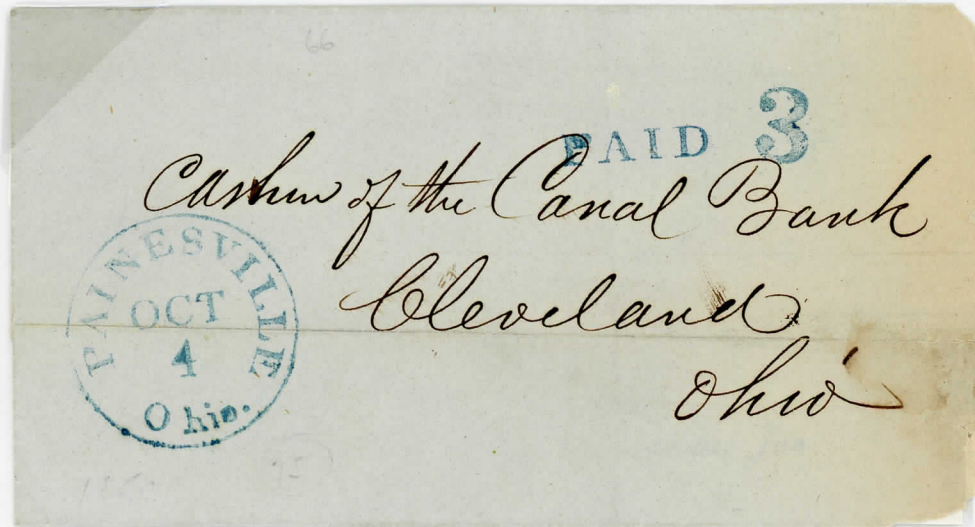 66
PAID 3
Cashier of the Canal Bank
Cleveland
Ohio
PAINESVILLE
OCT
4
Ohio.